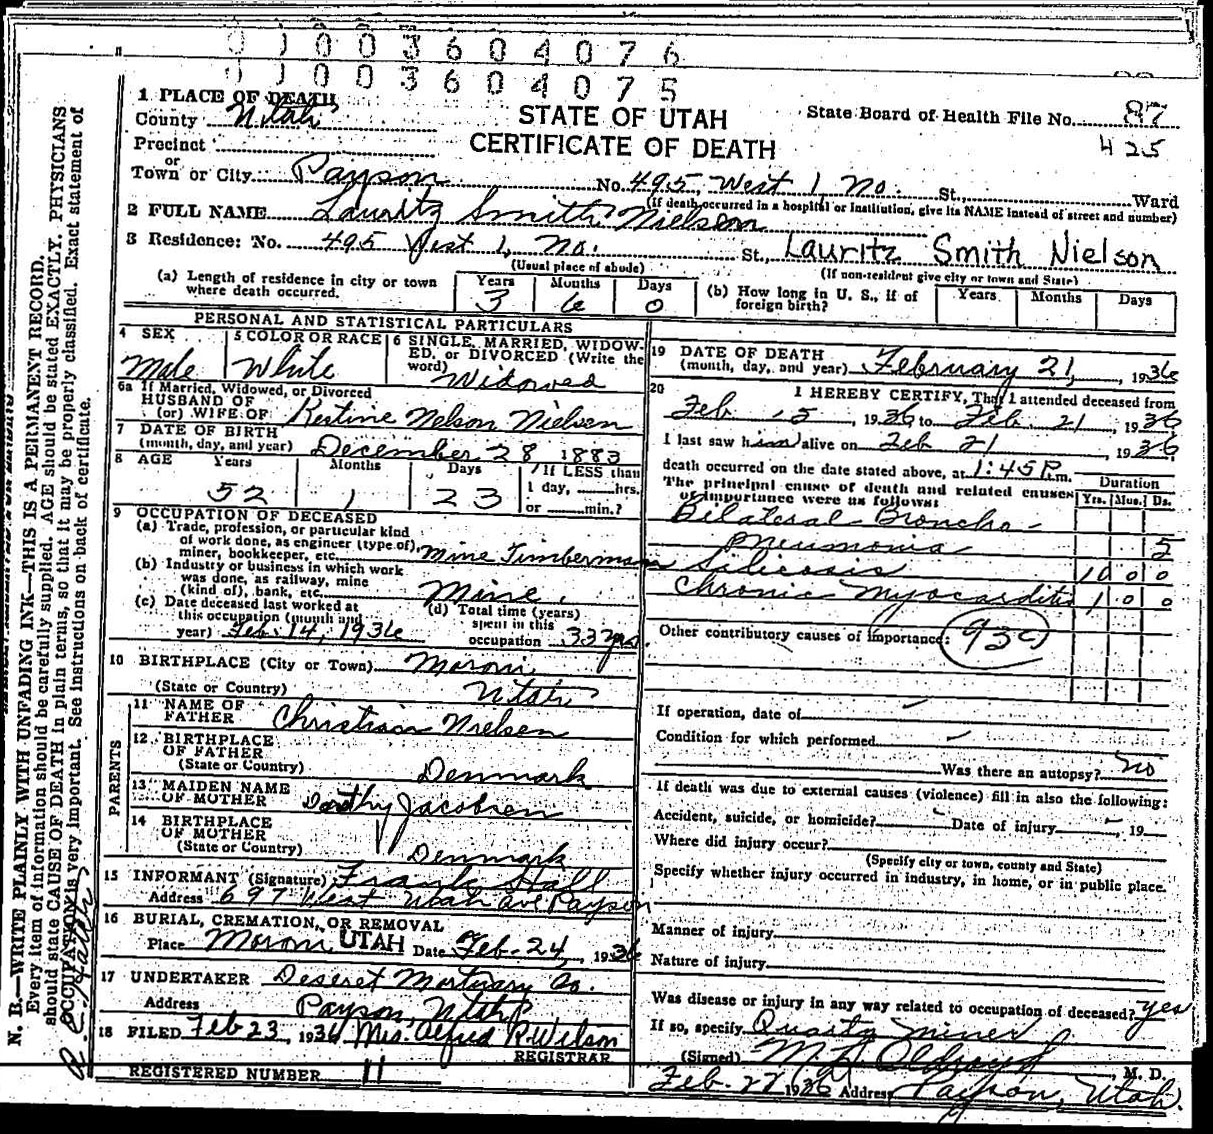 0 1 0 0 3 6 0 4 0 7 6
0 1 0 0 3 6 0 4 0 7 5
1 PLACE OF DEATH
County Utah
STATE OF UTAH
CERTIFICATE OF DEATH
State Board of Health File No. 87
425
Precinct
or
Town or City Payson No. 495, West 1 No. St., Ward
(If death occurred in a hospital or institution, give its NAME instead of street and number)
2 FULL NAME Lauritz Smith Nielsen
3 Residence: No. 495 West 1, No. St., Lauritz Smith Nielson
(Usual place of abode) (If non-resident give city or town and State)
(a) Length of residence in city or town where death occurred. Years 3 Months 6 Days 0
(b) How long in U. S., if of foreign birth? Years Months Days
PERSONAL AND STATISTICAL PARTICULARS
4 SEX Male
5 COLOR OR RACE White
6 SINGLE, MARRIED, WIDOWED, or DIVORCED (Write the word) Widowed
6a If Married, Widowed, or Divorced
HUSBAND OF
(or) WIFE OF Kestine Nelson Nielsen
7 DATE OF BIRTH
(month, day, and year) December 28 1883
8 AGE Years 52 Months 1 Days 23 If LESS than 1 day, hrs. or min.?
9 OCCUPATION OF DECEASED
(a) Trade, profession, or particular kind
of work done, as engineer (type of),
miner, bookkeeper, etc. Mine Timberman
(b) Industry or business in which work
was done, as railway, mine
(kind of), bank, etc. Mine.
(c) Date deceased last worked at
this occupation (month and
year) Feb. 14, 1936
(d) Total time (years)
spent in this
occupation 33 yrs.
10 BIRTHPLACE (City or Town) Moroni
(State or Country) Utah
PARENTS
11 NAME OF
FATHER Christian Nielsen
12 BIRTHPLACE
OF FATHER
(State or Country) Denmark
13 MAIDEN NAME
OF MOTHER Dorthy Jacobsen
14 BIRTHPLACE
OF MOTHER
(State or Country) Denmark
15 INFORMANT (Signature) Frank Hall
Address 697 West Utah ave Payson
16 BURIAL, CREMATION, OR REMOVAL
Place Moroni UTAH Date Feb. 24, 1936
17 UNDERTAKER Deseret Mortuary Co.
Address Payson, Utah
18 FILED Feb 23, 1936 Mrs. Alfred R. Wilson
REGISTRAR
REGISTERED NUMBER 11
19 DATE OF DEATH
(month, day, and year) February 21, 1936
20 I HEREBY CERTIFY, That I attended deceased from
Feb 15, 1936 to Feb. 21, 1936
I last saw him alive on Feb 21, 1936
death occurred on the date stated above, at 1:45 P.m.
The principal cause of death and related causes
of importance were as follows: Duration Yrs. Mos. Ds.
Bilateral Broncho-
pneumonia 5
Silicosis 10 0 0
Chronic Myocarditis 1 0 0
Other contributory causes of importance: 93c
If operation, date of
Condition for which performed
Was there an autopsy? no
If death was due to external causes (violence) fill in also the following:
Accident, suicide, or homicide? Date of injury , 19
Where did injury occur?
(Specify city or town, county and State)
Specify whether injury occurred in industry, in home, or in public place.
Manner of injury
Nature of injury
Was disease or injury in any way related to occupation of deceased? yes
If so, specify Quartz miner
(Signed) M. D. Oldroyd, M. D.
Feb. 22 1936 Address Payson, Utah.
N. B.—WRITE PLAINLY WITH UNFADING INK—THIS IS A PERMANENT RECORD.
Every item of information should be carefully supplied. AGE should be stated EXACTLY. PHYSICIANS
should state CAUSE OF DEATH in plain terms, so that it may be properly classified. Exact statement of
OCCUPATION is very important. See instructions on back of certificate.